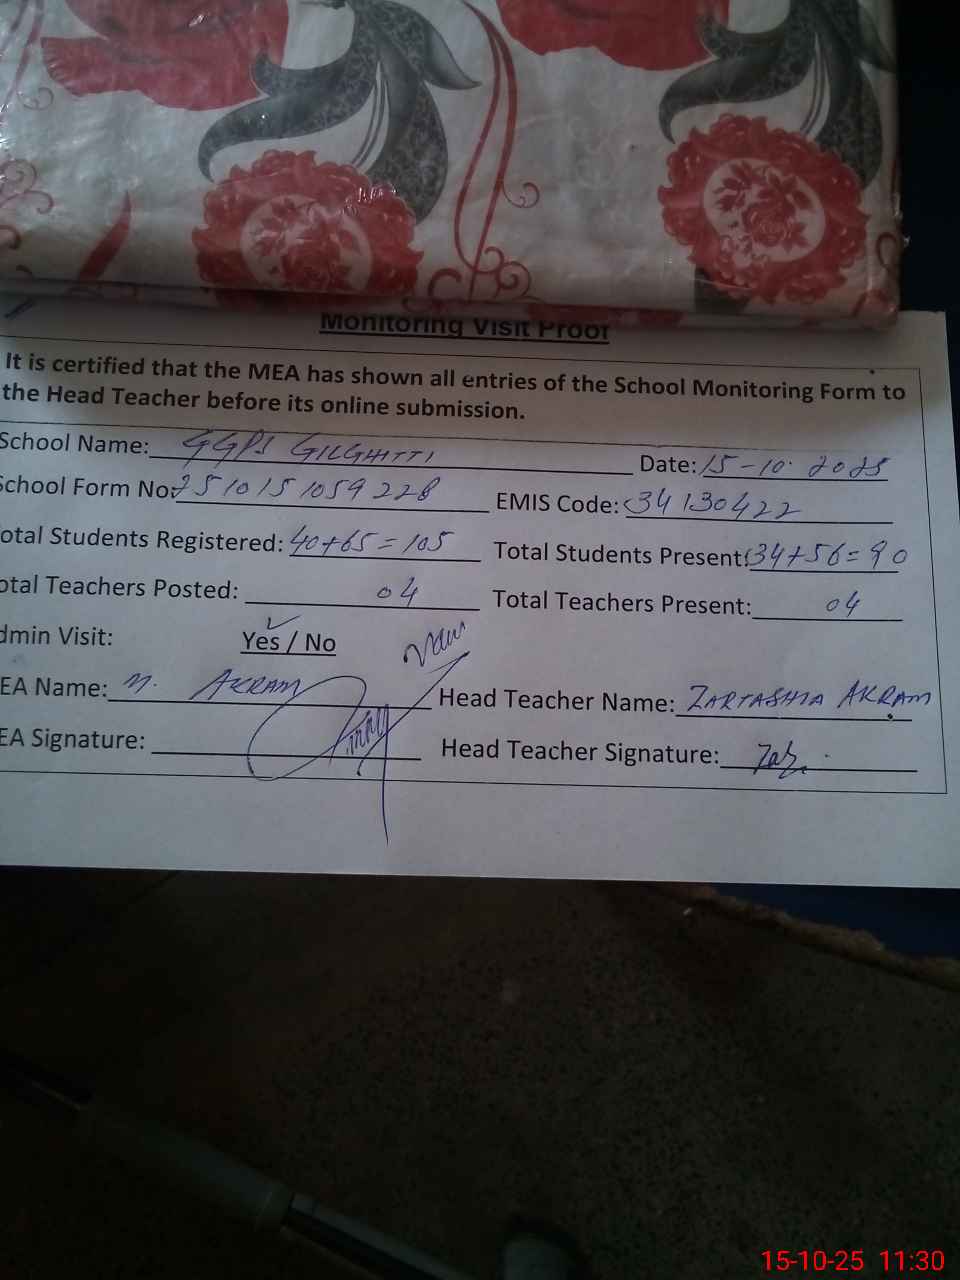 Monitoring Visit Proof
It is certified that the MEA has shown all entries of the School Monitoring Form to
the Head Teacher before its online submission.
School Name: GGPS GILGHITTI Date: 15-10-2025
School Form No: 2510151059228 EMIS Code: 34130422
otal Students Registered: 40+65=105 Total Students Present: 34+56=90
otal Teachers Posted: 04 Total Teachers Present: 04
dmin Visit: Yes / No
EA Name: M. AKRAM Head Teacher Name: ZARTASHIA AKRAM
EA Signature: Head Teacher Signature:
15-10-25 11:30